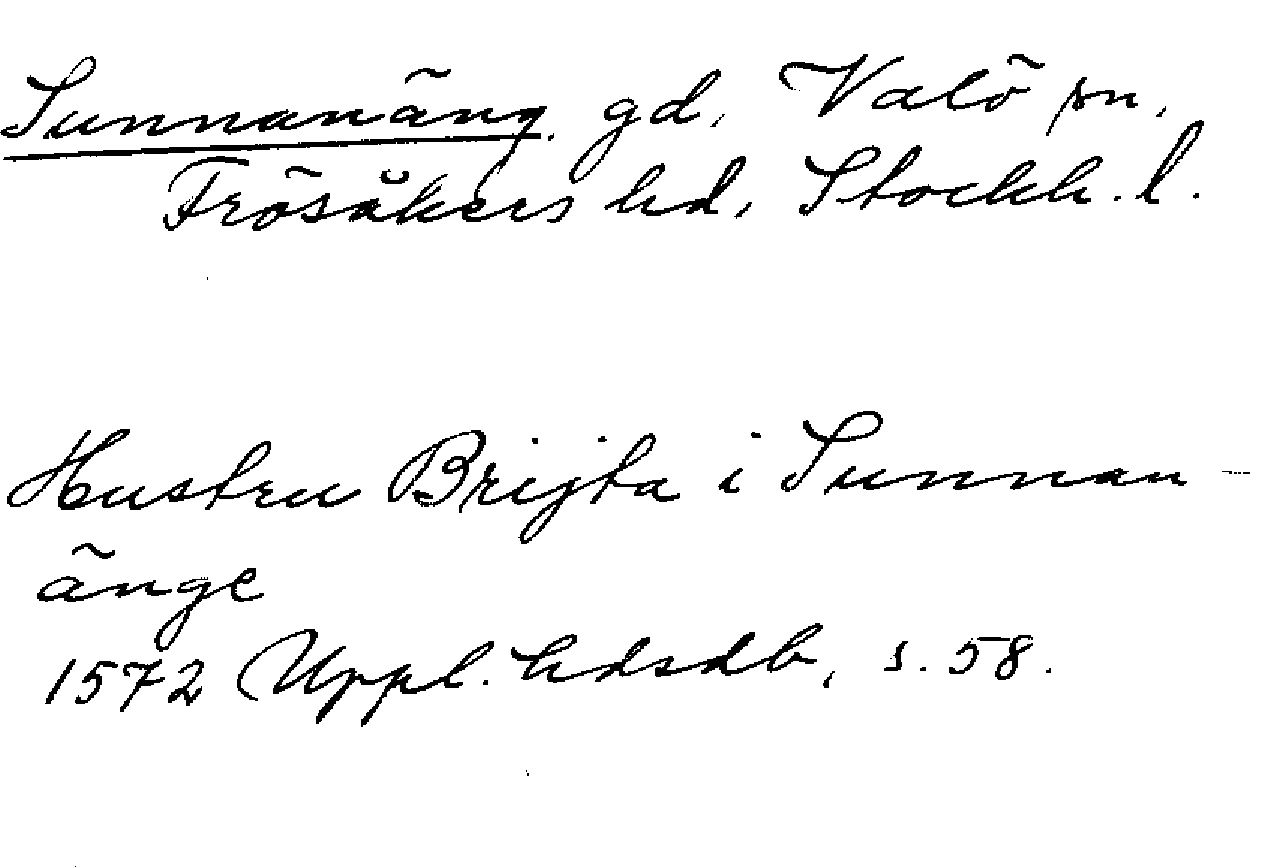 Sunnanäng, gd, Valö sn,
Frösåkers hd, Stockh. l.
Hustru Brijta i Sunnan-
änge
1572 Uppl. hdsdb, s. 58.